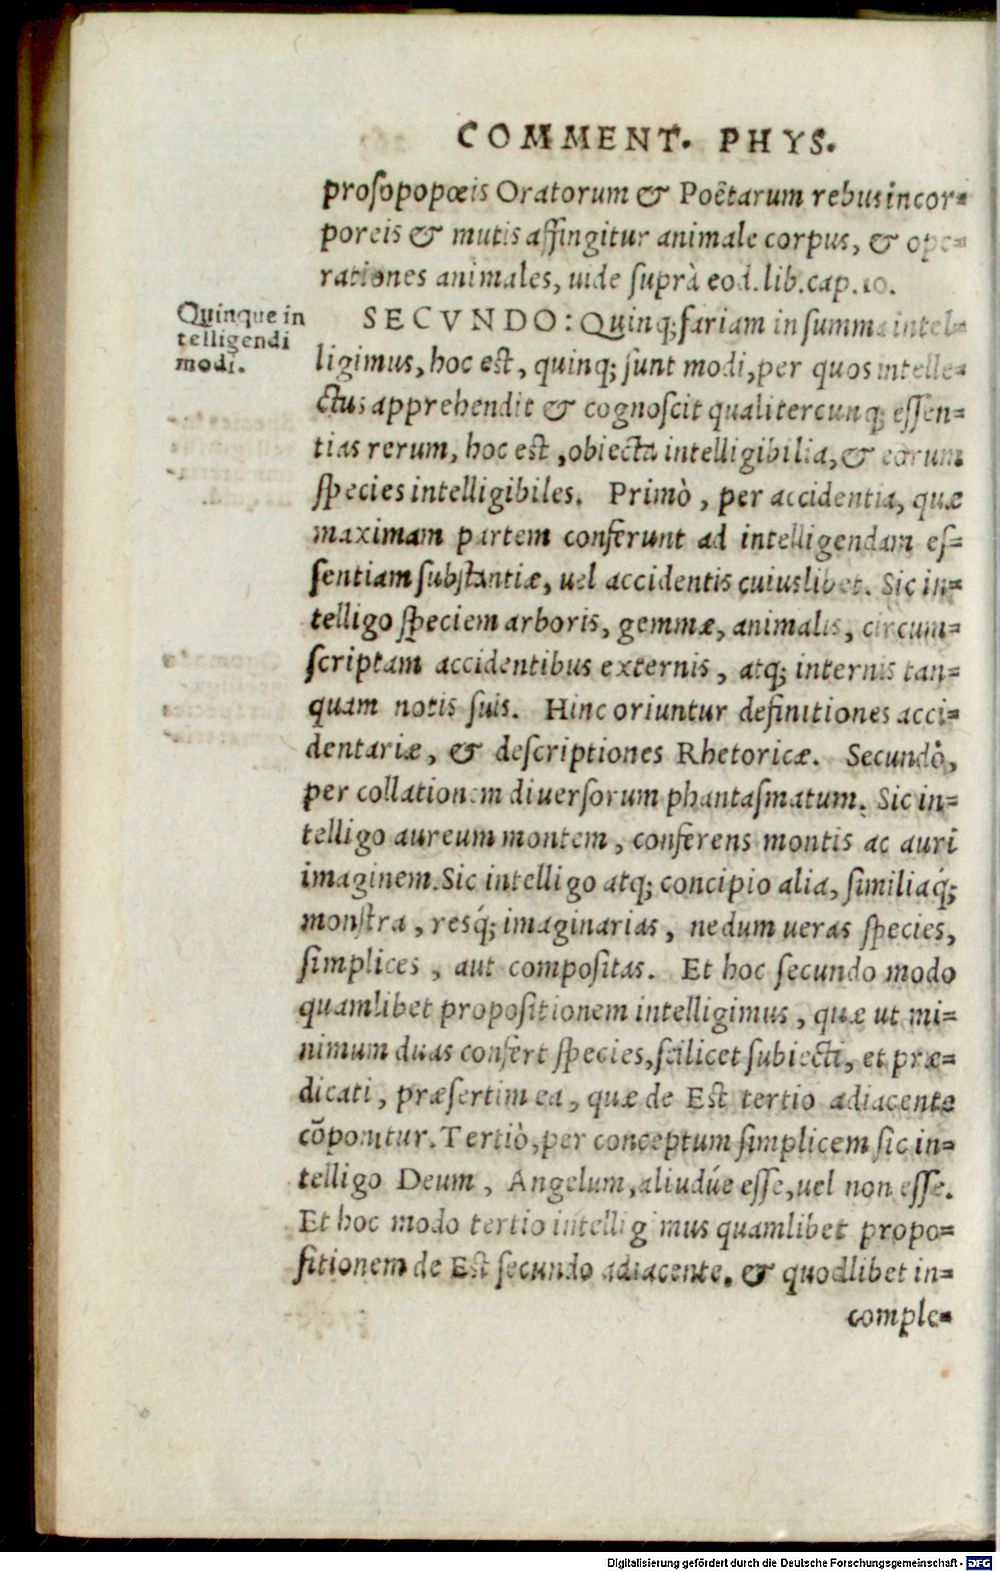 COMMENT. PHYS.
prosopopœis Oratorum & Poëtarum rebus incor-
poreis & mutis affingitur animale corpus, & ope-
rationes animales, uide suprà eod. lib. cap. 10.
Quinque in
telligendi
modi.
SECVNDO: Quinq; fariam in summa intel-
ligimus, hoc est, quinq; sunt modi, per quos intelle-
ctus apprehendit & cognoscit qualitercunq; essen-
tias rerum, hoc est, obiecta intelligibilia, & earum
species intelligibiles. Primò, per accidentia, quæ
maximam partem conferunt ad intelligendam es-
sentiam substantiæ, uel accidentis cuiuslibet. Sic in-
telligo speciem arboris, gemmæ, animalis, circum-
scriptam accidentibus externis, atq; internis tan-
quam notis suis. Hinc oriuntur definitiones acci-
dentariæ, & descriptiones Rhetoricæ. Secundò,
per collationem diuersorum phantasmatum. Sic in-
telligo aureum montem, conferens montis ac auri
imaginem. Sic intelligo atq; concipio alia, similiaq́;
monstra, resq́; imaginarias, nedum ueras species,
simplices, aut compositas. Et hoc secundo modo
quamlibet propositionem intelligimus, quæ ut mi-
nimum duas confert species, scilicet subiecti, et præ-
dicati, præsertim ea, quæ de Est tertio adiacente
cōponitur. Tertiò, per conceptum simplicem sic in-
telligo Deum, Angelum, aliud́ue esse, uel non esse.
Et hoc modo tertio intelligimus quamlibet propo-
sitionem de Est secundo adiacente. & quodlibet in-
comple-
Digitalisierung gefördert durch die Deutsche Forschungsgemeinschaft - DFG